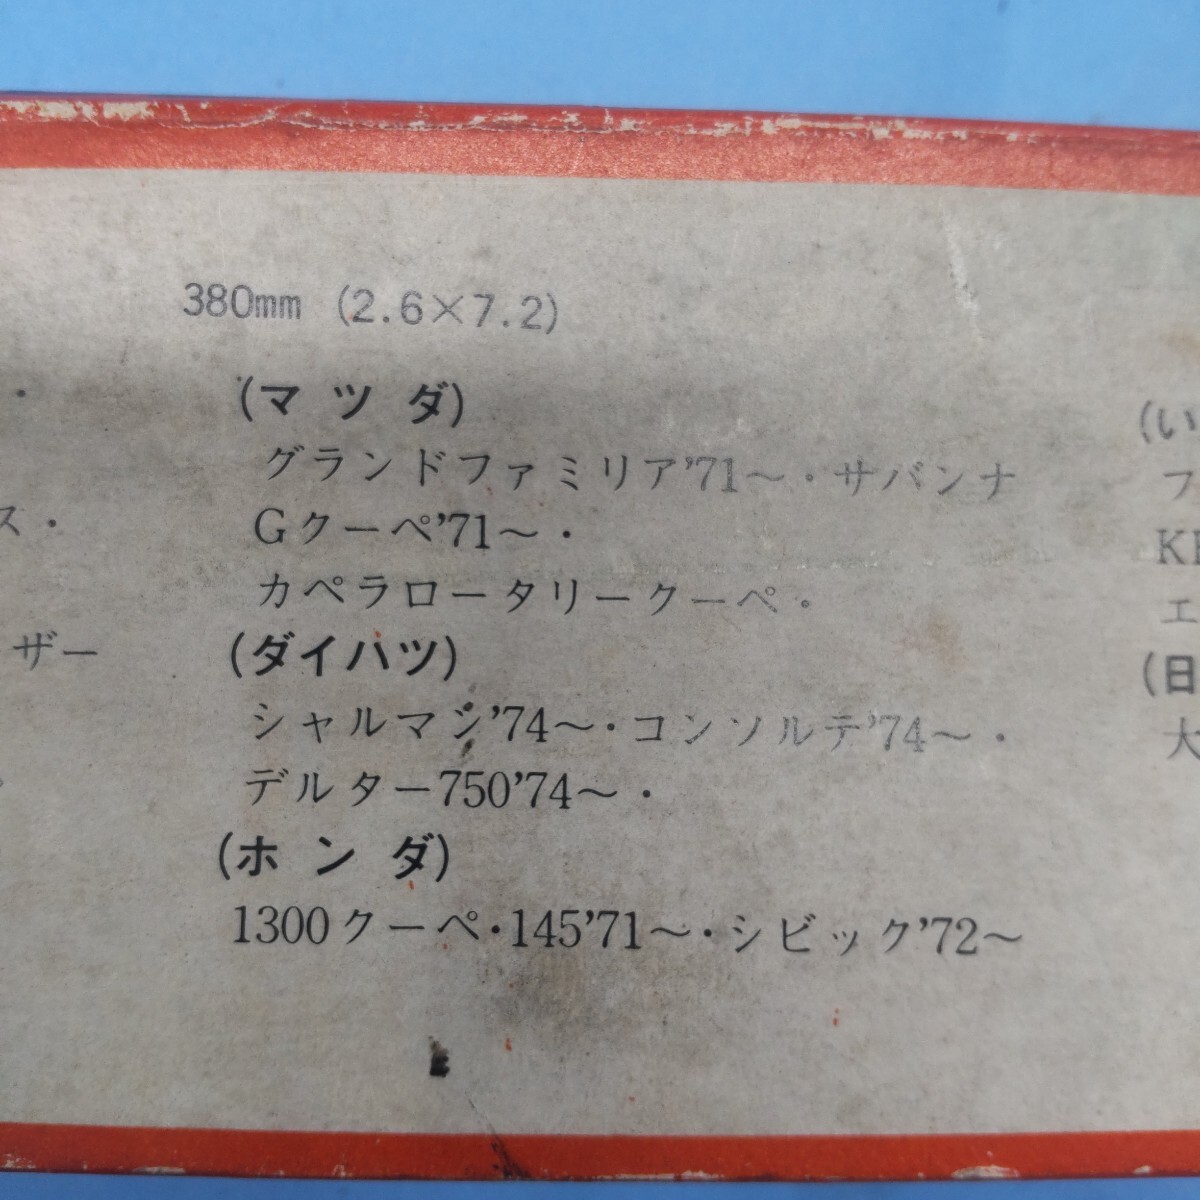 380mm (2.6×7.2)
(マツダ)
グランドファミリア'71〜・サバンナ
Gクーペ'71〜・
カペラロータリークーペ・
(ダイハツ)
シャルマン'74〜・コンソルテ'74〜・
デルター750'74〜・
(ホンダ)
1300クーペ・145'71〜・シビック'72〜
ス・
ザー
(い
フ
エ
(日
大